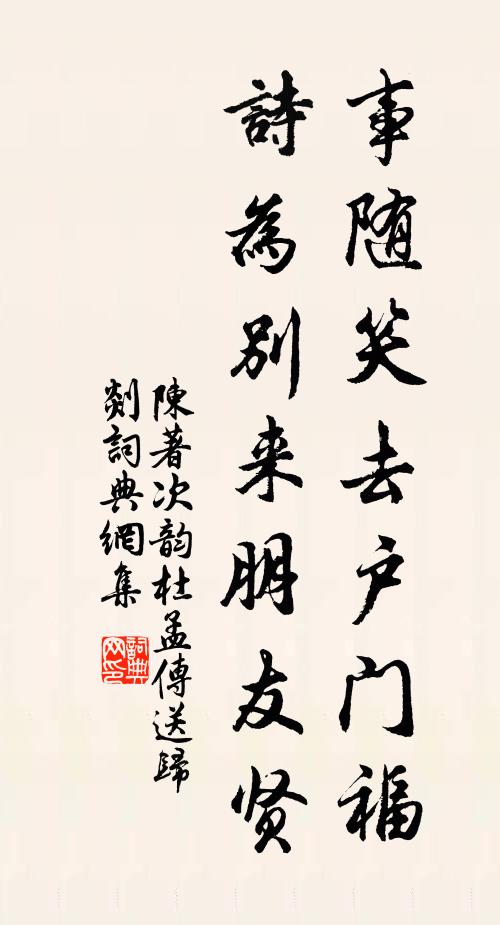 事随笑去户门福
詩為别来朋友贤
陳著次韵杜孟傳送歸
剡詞典網集
詞典网印